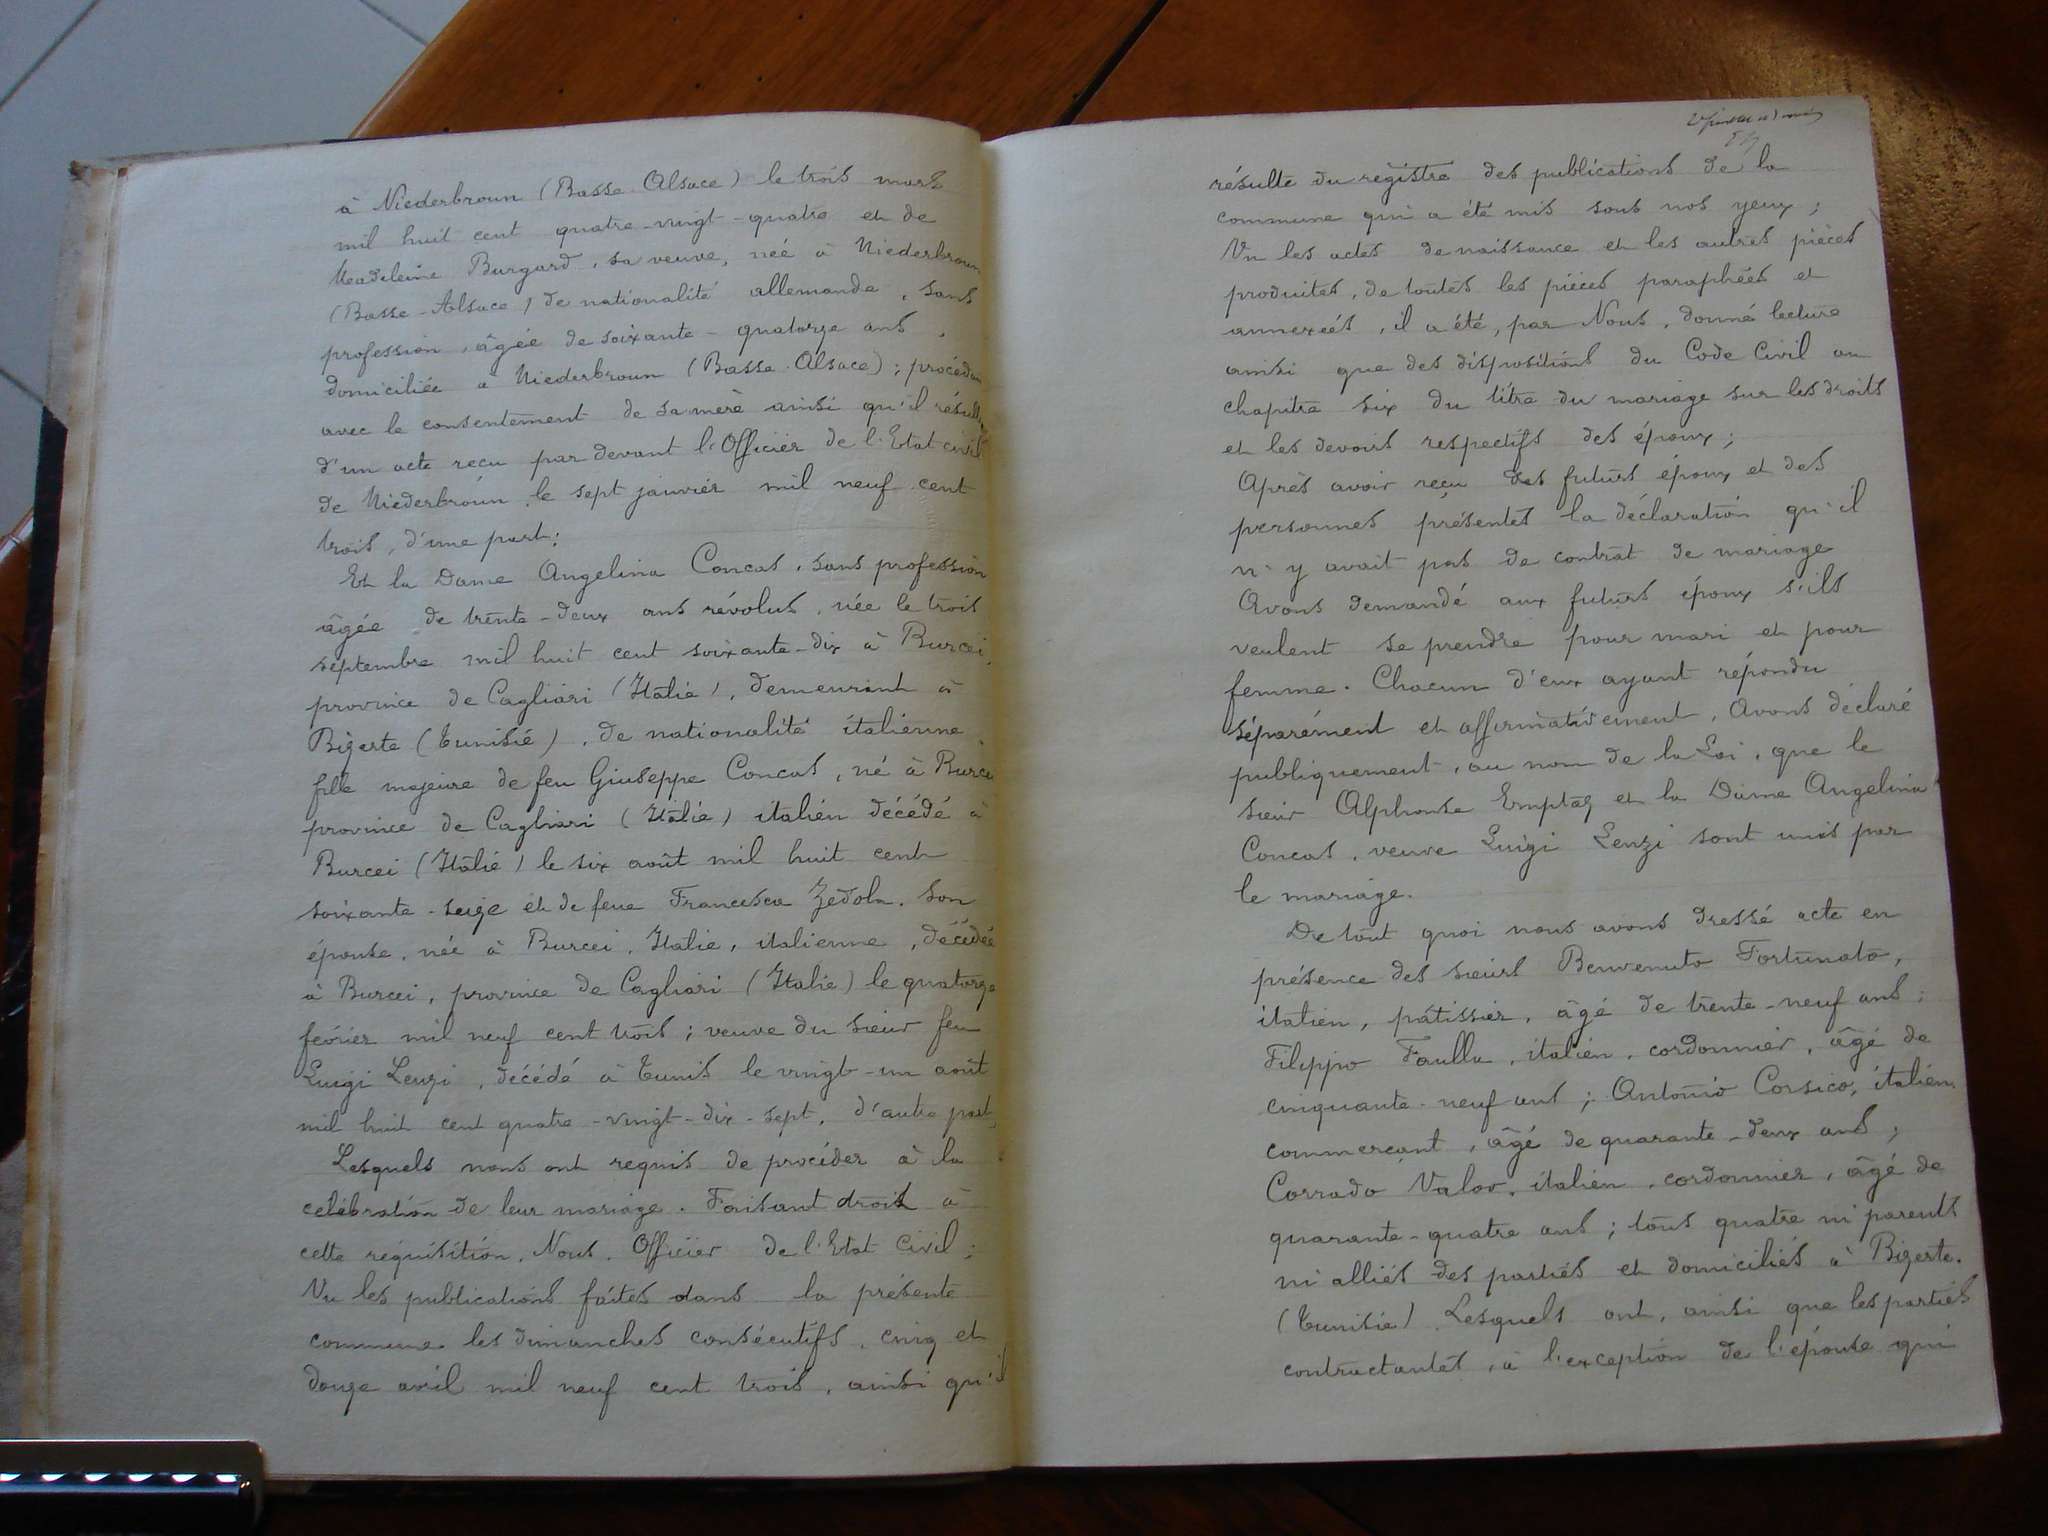 à Niederbroun (Basse Alsace) le trois mars
mil huit cent quatre-vingt-quatre et de
Madeleine Burgard, sa veuve, née à Niederbroun
(Basse-Alsace) de nationalité allemande, sans
profession, âgée de soixante-quatorze ans,
domiciliée à Niederbroun (Basse Alsace); procédant
avec le consentement de sa mère ainsi qu'il résulte
d'un acte reçu par devant l'Officier de l'Etat civil
de Niederbroun le sept janvier mil neuf cent
trois, d'une part;
Et la Dame Angelina Concas, sans profession
âgée de trente-deux ans révolus, née le trois
septembre mil huit cent soixante-dix à Burcei,
province de Cagliari (Italie), demeurant à
Bizerte (Tunisie), de nationalité italienne
fille majeure de feu Giuseppe Concas, né à Burcei
province de Cagliari (Italie) italien décédé à
Burcei (Italie) le six août mil huit cent
soixante-seize et de feue Francesca Zedola, son
épouse, née à Burcei, Italie, italienne, décédée
à Burcei, province de Cagliari (Italie) le quatorze
février mil neuf cent trois; veuve du sieur feu
Luigi Lenzi, décédé à Tunis le vingt-un août
mil huit cent quatre-vingt-dix-sept, d'autre part,
Lesquels nous ont requis de procéder à la
célébration de leur mariage. Faisant droit à
cette réquisition, Nous, Officier de l'Etat Civil;
Vu les publications faites dans la présente
commune les dimanches consécutifs, cinq et
douze avril mil neuf cent trois, ainsi qu'il
résulte du registre des publications de la
commune qui a été mis sous nos yeux;
Vu les actes de naissance et les autres pièces
produites, de toutes les pièces paraphées et
annexées, il a été, par Nous, donné lecture
ainsi que des dispositions du Code Civil au
chapitre six du titre du mariage sur les droits
et les devoirs respectifs des époux;
Après avoir reçu des futurs époux et des
personnes présentes la déclaration qu'il
n'y avait pas de contrat de mariage
Avons demandé aux futurs époux s'ils
veulent se prendre pour mari et pour
femme. Chacun d'eux ayant répondu
séparément et affirmativement, Avons déclaré
publiquement, au nom de la Loi, que le
sieur Alphonse Emptaz et la Dame Angelina
Concas, veuve Luigi Lenzi sont unis par
le mariage.
De tout quoi nous avons dressé acte en
présence des sieurs Benvenuto Fortunato,
italien, pâtissier, âgé de trente-neuf ans;
Filippo Faulla, italien, cordonnier, âgé de
cinquante-neuf ans; Antonio Corsico, italien
commerçant, âgé de quarante-deux ans;
Corrado Valor, italien, cordonnier, âgé de
quarante-quatre ans; tous quatre ni parents
ni alliés des parties et domiciliés à Bizerte.
(Tunisie) Lesquels ont, ainsi que les parties
contractantes, à l'exception de l'épouse qui